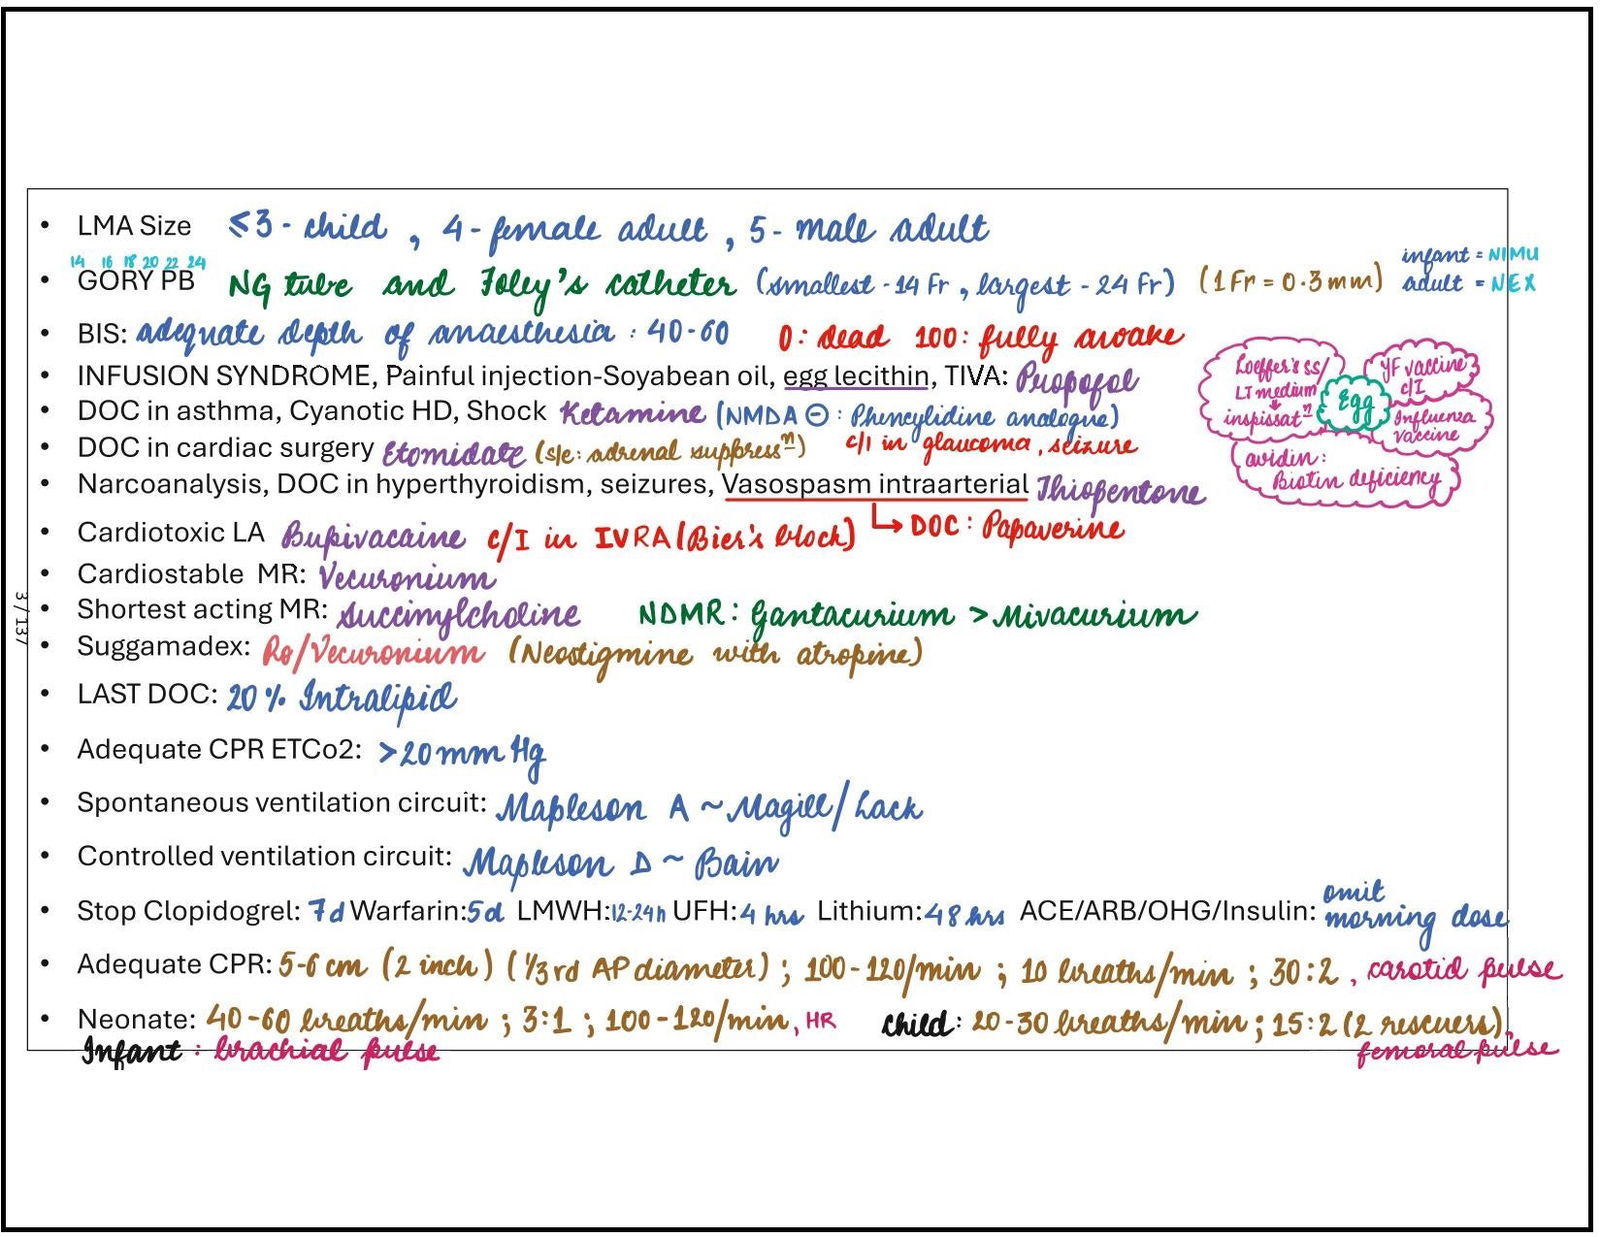 • LMA Size ≤3 - child , 4 - female adult , 5 - male adult
14 16 18 20 22 24
infant = NIMU
• GORY PB NG tube and Foley's catheter (smallest - 14 Fr , largest - 24 Fr) (1 Fr = 0.3 mm) adult = NEX
• BIS: adequate depth of anaesthesia : 40-60 0: dead 100: fully awake
• INFUSION SYNDROME, Painful injection-Soyabean oil, egg lecithin, TIVA: Propofol
• DOC in asthma, Cyanotic HD, Shock Ketamine (NMDA ⊖ : Phencylidine analogue)
c/I in glaucoma, seizure
• DOC in cardiac surgery Etomidate (s/e: adrenal suppressⁿ)
• Narcoanalysis, DOC in hyperthyroidism, seizures, Vasospasm intraarterial Thiopentone
↳ DOC : Papaverine
Loeffer's ss/
LJ medium
↓
inspissatⁿ
Egg
YF vaccine
c/I
Influenza
vaccine
avidin:
Biotin deficiency
• Cardiotoxic LA Bupivacaine c/I in IVRA (Bier's block)
• Cardiostable MR: Vecuronium
• Shortest acting MR: Succinylcholine NDMR : Gantacurium > Mivacurium
• Suggamadex: Ro/Vecuronium (Neostigmine with atropine)
3 / 137
• LAST DOC: 20% Intralipid
• Adequate CPR ETCo2: >20mm Hg
• Spontaneous ventilation circuit: Mapleson A ~ Magill/Lack
• Controlled ventilation circuit: Mapleson D ~ Bain
• Stop Clopidogrel: 7d Warfarin:5d LMWH:12-24h UFH:4 hrs Lithium:48 hrs ACE/ARB/OHG/Insulin: omit
morning dose
• Adequate CPR: 5-6 cm (2 inch) (1/3rd AP diameter) ; 100-120/min ; 10 breaths/min ; 30:2 , carotid pulse
• Neonate: 40-60 breaths/min ; 3:1 ; 100-120/min, HR child: 20-30 breaths/min ; 15:2 (2 rescuers),
Infant : brachial pulse femoral pulse